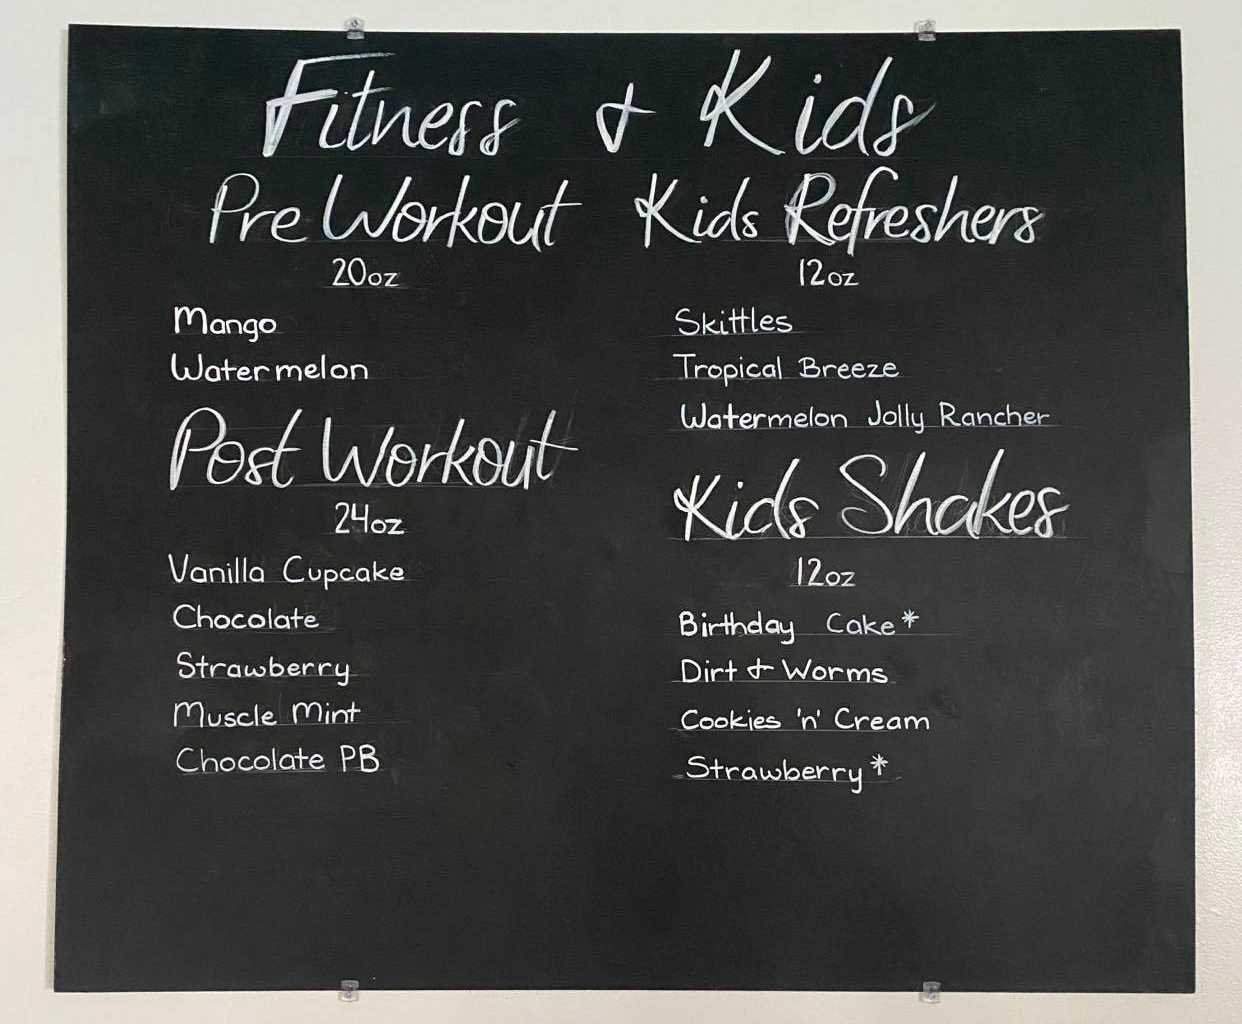 Fitness & Kids
Pre Workout
20oz
Mango
Watermelon
Post Workout
24oz
Vanilla Cupcake
Chocolate
Strawberry
Muscle Mint
Chocolate PB
Kids Refreshers
12oz
Skittles
Tropical Breeze
Watermelon Jolly Rancher
Kids Shakes
12oz
Birthday Cake*
Dirt & Worms
Cookies 'n' Cream
Strawberry*